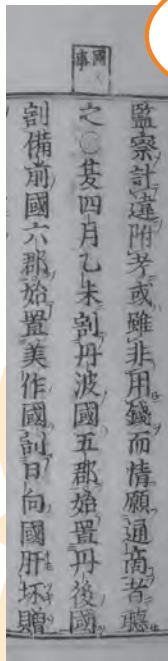 國事
監察計違附考或雖非用錢而情願通商者聽
之○夏四月乙未割丹波國五郡始置丹後國
割備前國六郡始置美作國割日向國肝坏贈